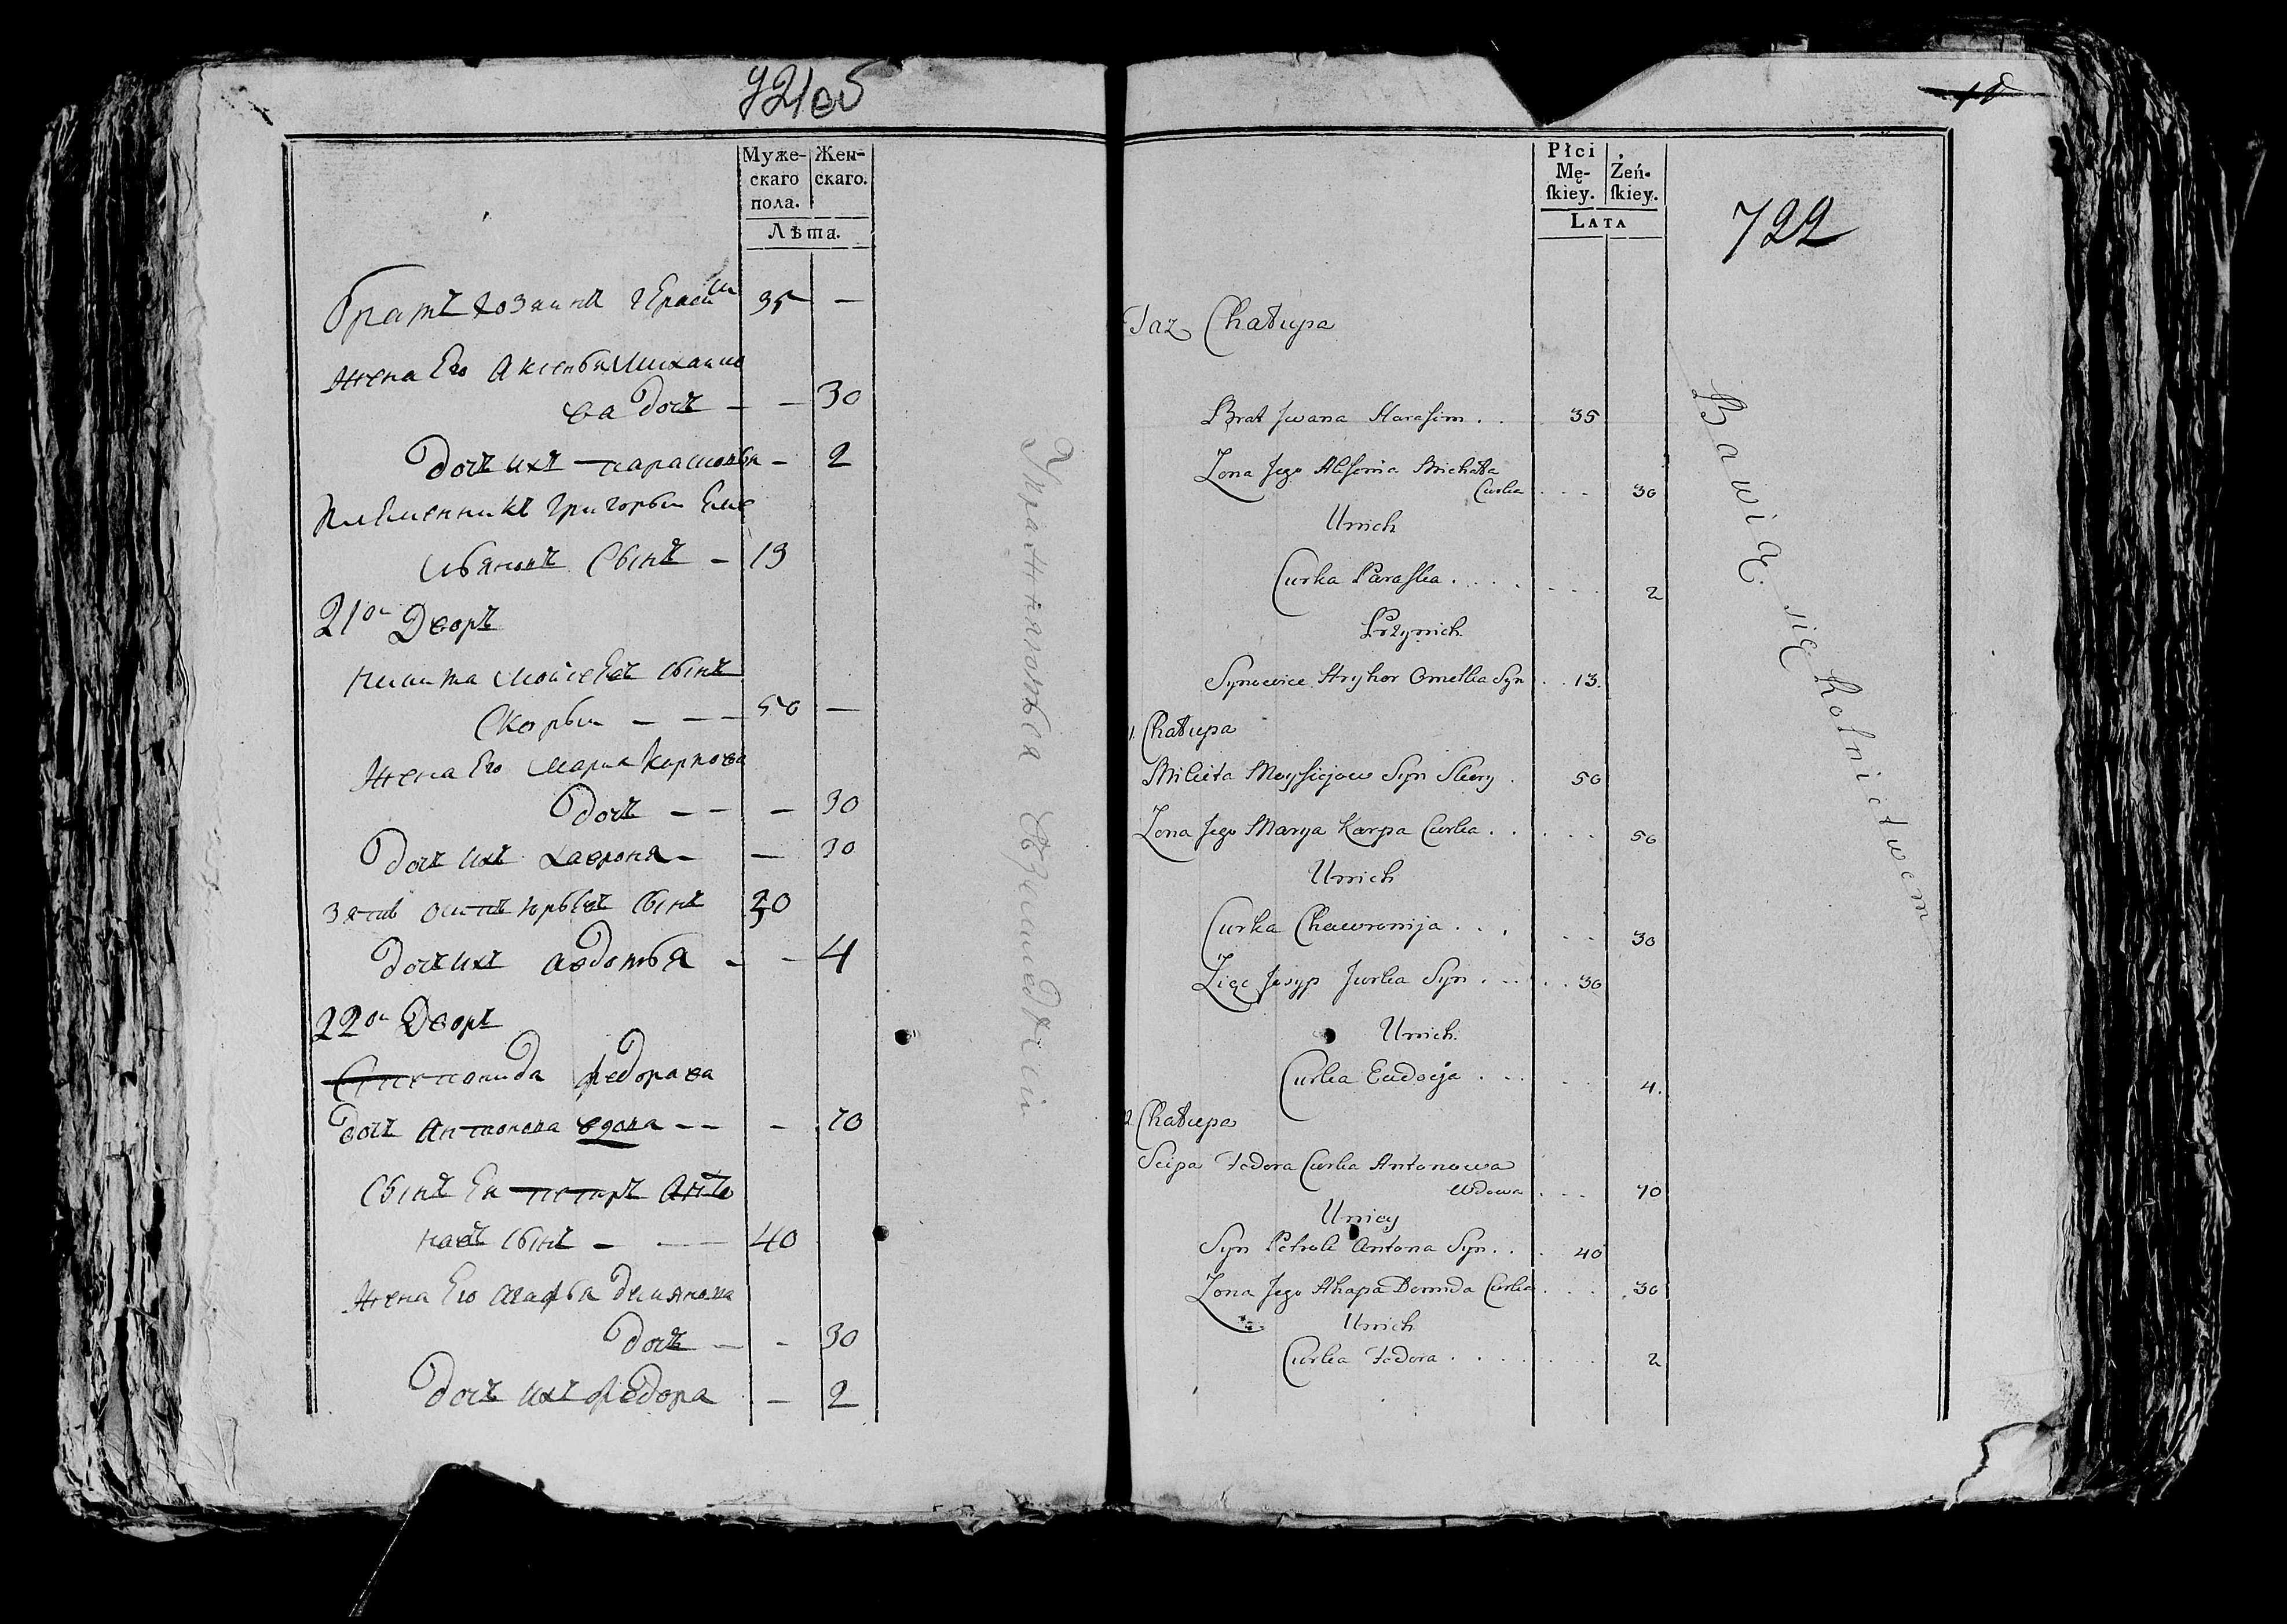 721об
Муже-
скаго
пола.
Жен-
скаго.
Лѣта.
братъ хозяина герасим 35 —
жена Его аксенья Михаило
ва дочь — — 30
дочь ихъ парасковья — 2
племенникъ григорьи Еме
льяновъ Сынъ — 13
21й Дворъ
никита Мойсеевъ сынъ
Скорьи — — — 50 —
жена Его Марья Карпова
дочь — — — 30
дочь ихъ хаврония — — 30
зять осипъ юрьевъ Сынъ 30
дочь ихъ авдотья — — 4
22й Дворъ
федорова
дочь Антонова вдова — — — 70
Сынъ Ея петръ Анто
новъ Сынъ — — 40
жена Его агафья демянова
дочь — — 30
дочь ихъ федора — 2
Упражняются Въ земледѣліи
Płci
Mę-
ſkiey.
Żeń-
ſkiey.
LATA
722
Taz Chałupa
Brat Jwana Harasim . . 35
Zona Jego Axenia Michała
Curka . . . 30
U nich
Curka Paraska . . . . . . . 2
Przy nich
Synowiec Hryhor Omelka Syn . . 13.
1. Chałupa
Mikita Moysiejow Syn Skory . 50
Zona Jego Marya Karpa Curka . . . . . 50
U nich
Curka Chawronija . . . . . 30
Zięc Josyp Jurka Syn . . . . . 30
U nich
Curka Eudocja . . . . . 4.
2. Chałupa
Fedora Curka Antonowa
Wdowa . . . 70
U niey
Syn Petrok Antona Syn . . . 40
Zona Jego Ahapa Demida Curka . . . . 30
U nich
Curka Fedora . . . . . . . 2
Bawią się Rolnictwem